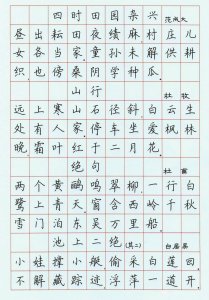 四时田园杂兴 范成大
昼出耘田夜绩麻村庄儿
女各当家童孙未解供耕
织也傍桑阴学种瓜
山行 杜牧
远上寒山石径斜白云生
处有人家停车坐爱枫林
晚霜叶红于二月花
绝句 杜甫
两个黄鹂鸣翠柳一行白
鹭上青天窗含西岭千秋
雪门泊东吴万里船
池上二绝(其二) 白居易
小娃撑小艇偷采白莲回
不解藏踪迹浮萍一道开